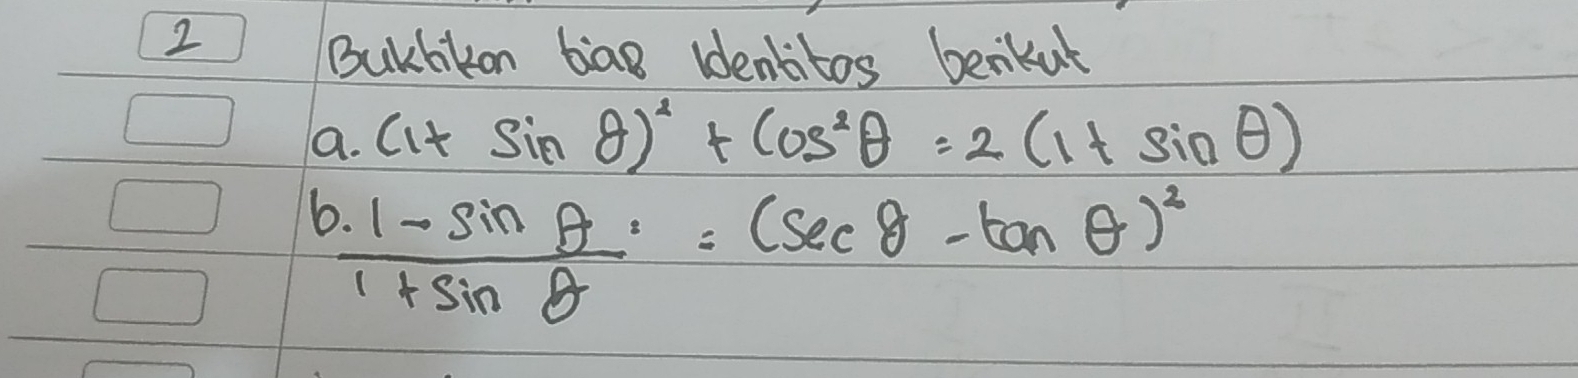 2 Buktikan tiap identitas berikut
a. (1 + sin θ)² + cos²θ = 2 (1 + sin θ)
b. 1 - sin θ = (sec θ - tan θ)²
1 + sin θ